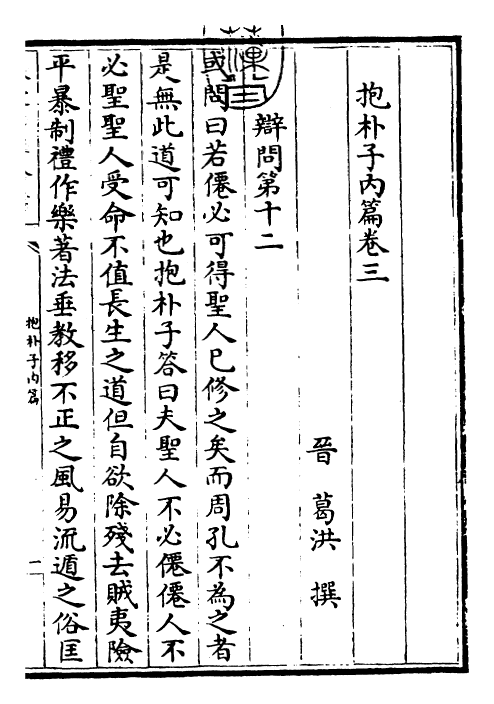 抱朴子内篇卷三
晉 葛洪 撰
辯問第十二
或問曰若僊必可得聖人已修之矣而周孔不為之者
是無此道可知也抱朴子答曰夫聖人不必僊僊人不
必聖聖人受命不值長生之道但自欲除殘去賊夷險
平暴制禮作樂著法垂教移不正之風易流遁之俗匡
抱朴子内篇
一